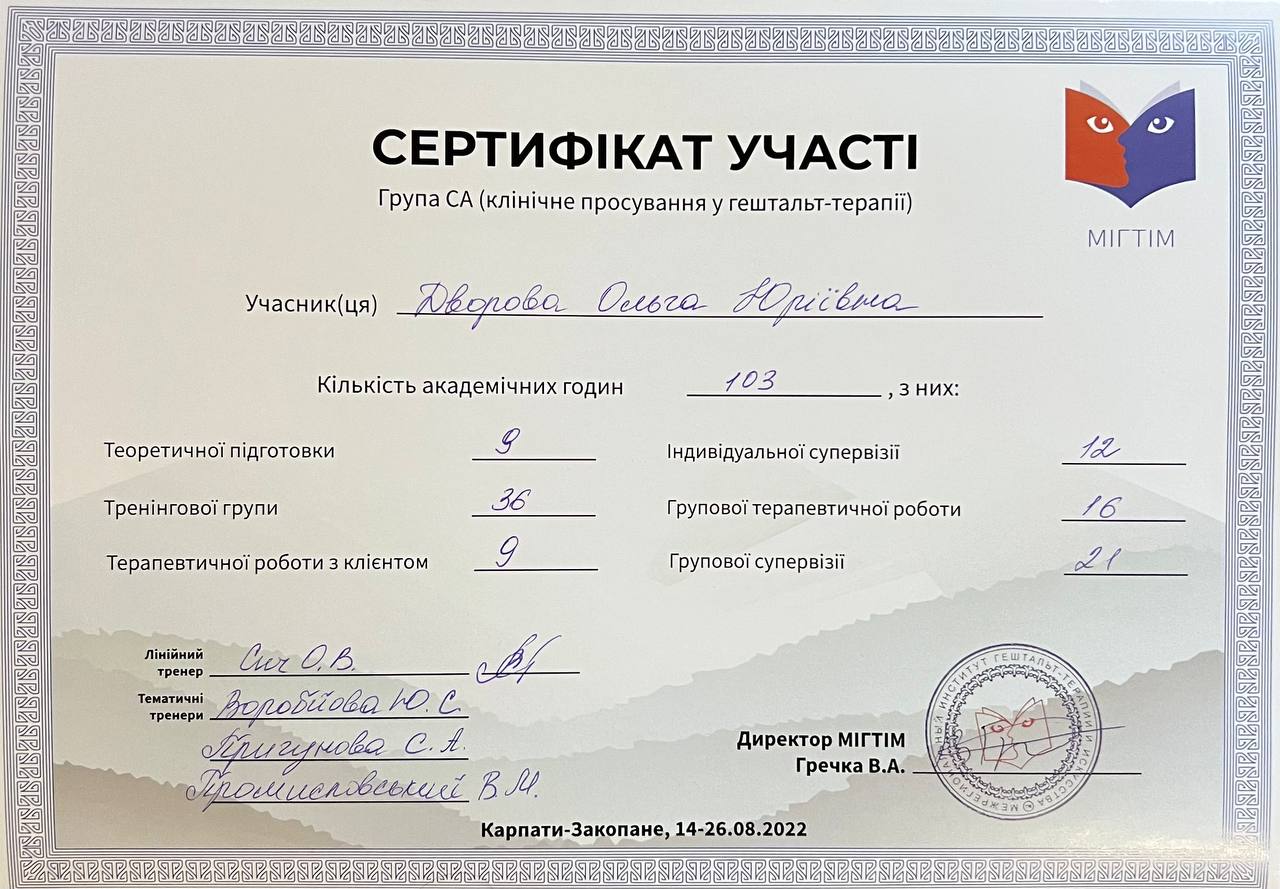 СЕРТИФІКАТ УЧАСТІ
Група СА (клінічне просування у гештальт-терапії)
МІГТІМ
Учасник(ця) Дворова Ольга Юріївна
Кількість академічних годин 103 , з них:
Теоретичної підготовки 9 Індивідуальної супервізії 12
Тренінгової групи 36 Групової терапевтичної роботи 16
Терапевтичної роботи з клієнтом 9 Групової супервізії 21
Лінійний тренер Сич О.В.
Тематичні тренери Воробйова Ю.С.
Пригунова С.А.
Промисловський В.М.
Директор МІГТІМ
Гречка В.А.
МЕЖРЕГИОНАЛЬНЫЙ ИНСТИТУТ ГЕШТАЛЬТ-ТЕРАПИИ И ИСКУССТВА
Карпати-Закопане, 14-26.08.2022